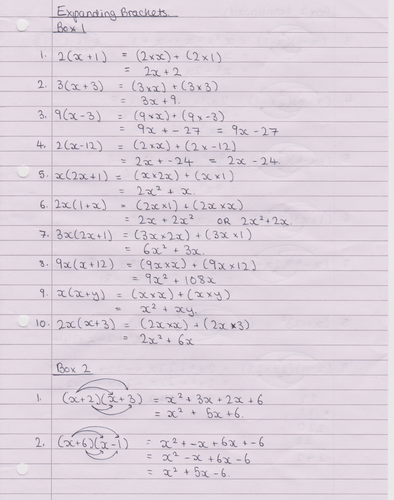 Expanding Brackets.
Box 1
1. 2(x+1) = (2×x) + (2×1)
= 2x + 2
2. 3(x+3) = (3×x) + (3×3)
= 3x + 9.
3. 9(x-3) = (9×x) + (9×-3)
= 9x + -27 = 9x - 27
4. 2(x-12) = (2×x) + (2×-12)
= 2x + -24 = 2x - 24.
5. x(2x+1) = (x×2x) + (x×1)
= 2x² + x.
6. 2x(1+x) = (2x×1) + (2x×x)
= 2x + 2x² OR 2x²+2x.
7. 3x(2x+1) = (3x×2x) + (3x×1)
= 6x² + 3x.
8. 9x(x+12) = (9x×x) + (9x×12)
= 9x² + 108x
9. x(x+y) = (x×x) + (x×y)
= x² + xy.
10. 2x(x+3) = (2x×x) + (2x×3)
= 2x² + 6x
Box 2
1. (x+2)(x+3) = x² + 3x + 2x + 6
= x² + 5x + 6.
2. (x+6)(x-1) = x² + -x + 6x + -6
= x² - x + 6x - 6
= x² + 5x - 6.